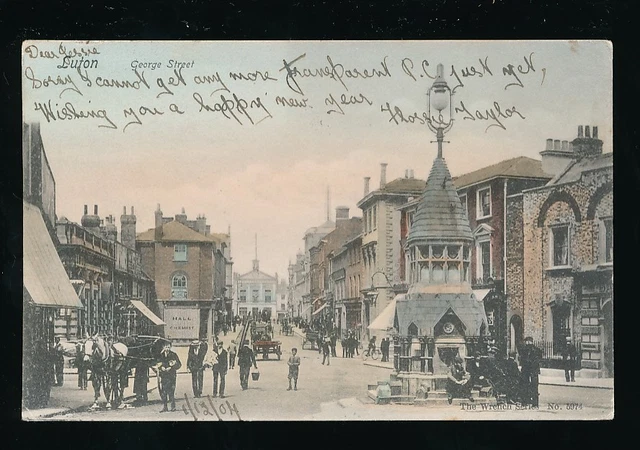 Dear Jessie
Luton George Street
Sorry I cannot get any more transparent P.C. just yet,
Wishing you a happy new year Florrie Taylor
HALL
1/12/04
The Wrench Series No. 5974